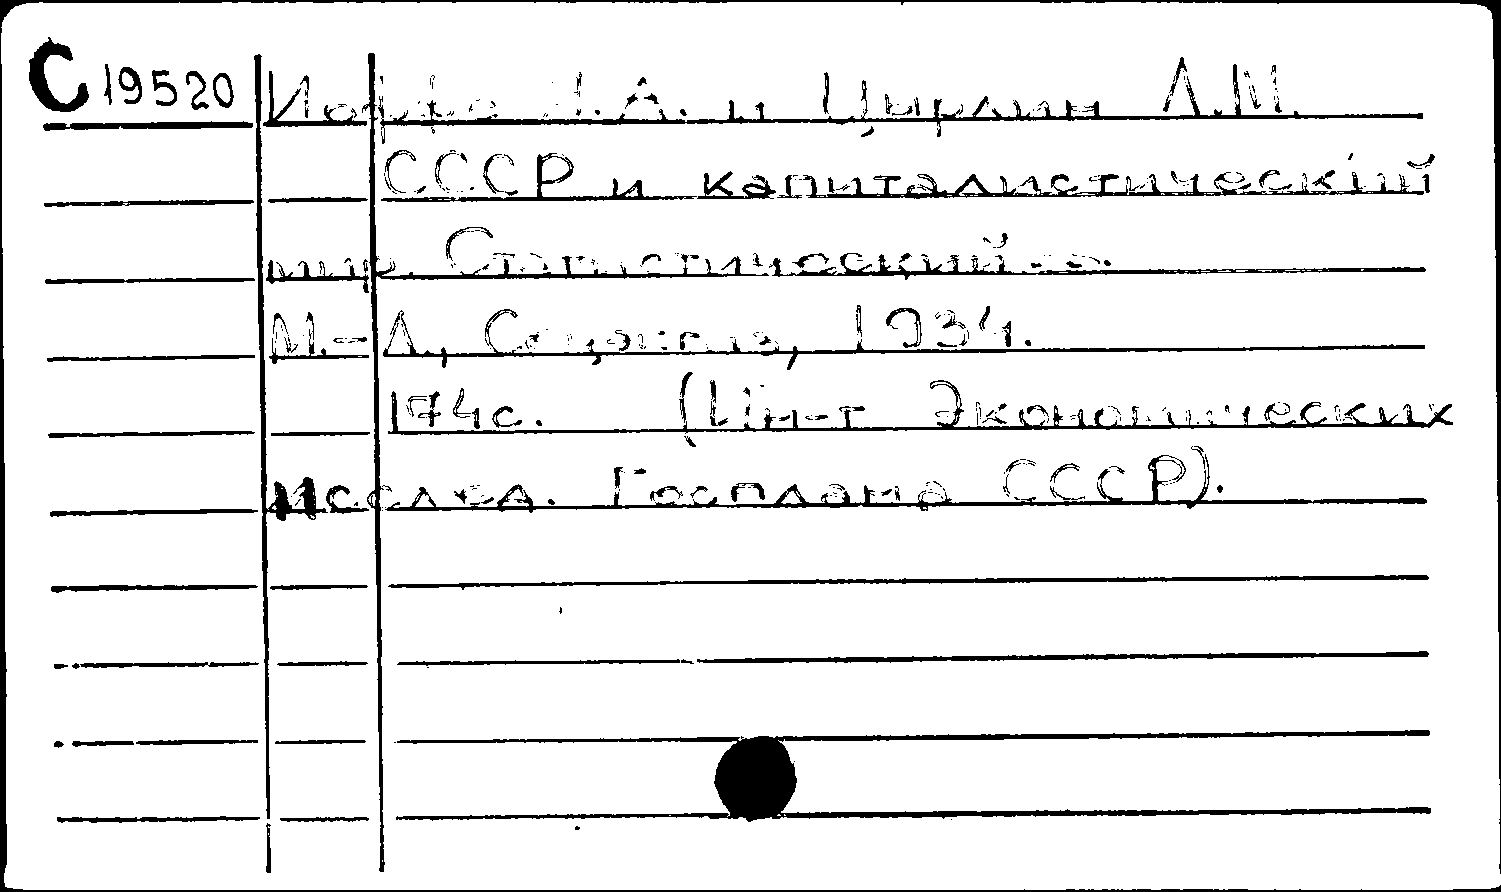 С 19520 Иоффе Я.А. и Цырлин Л.М.
СССР и капиталистический
мир. Статистический сб.
М.-Л., Соцэкгиз, 1934.
174с. (Ин-т Экономических
исслед. Госплана СССР).